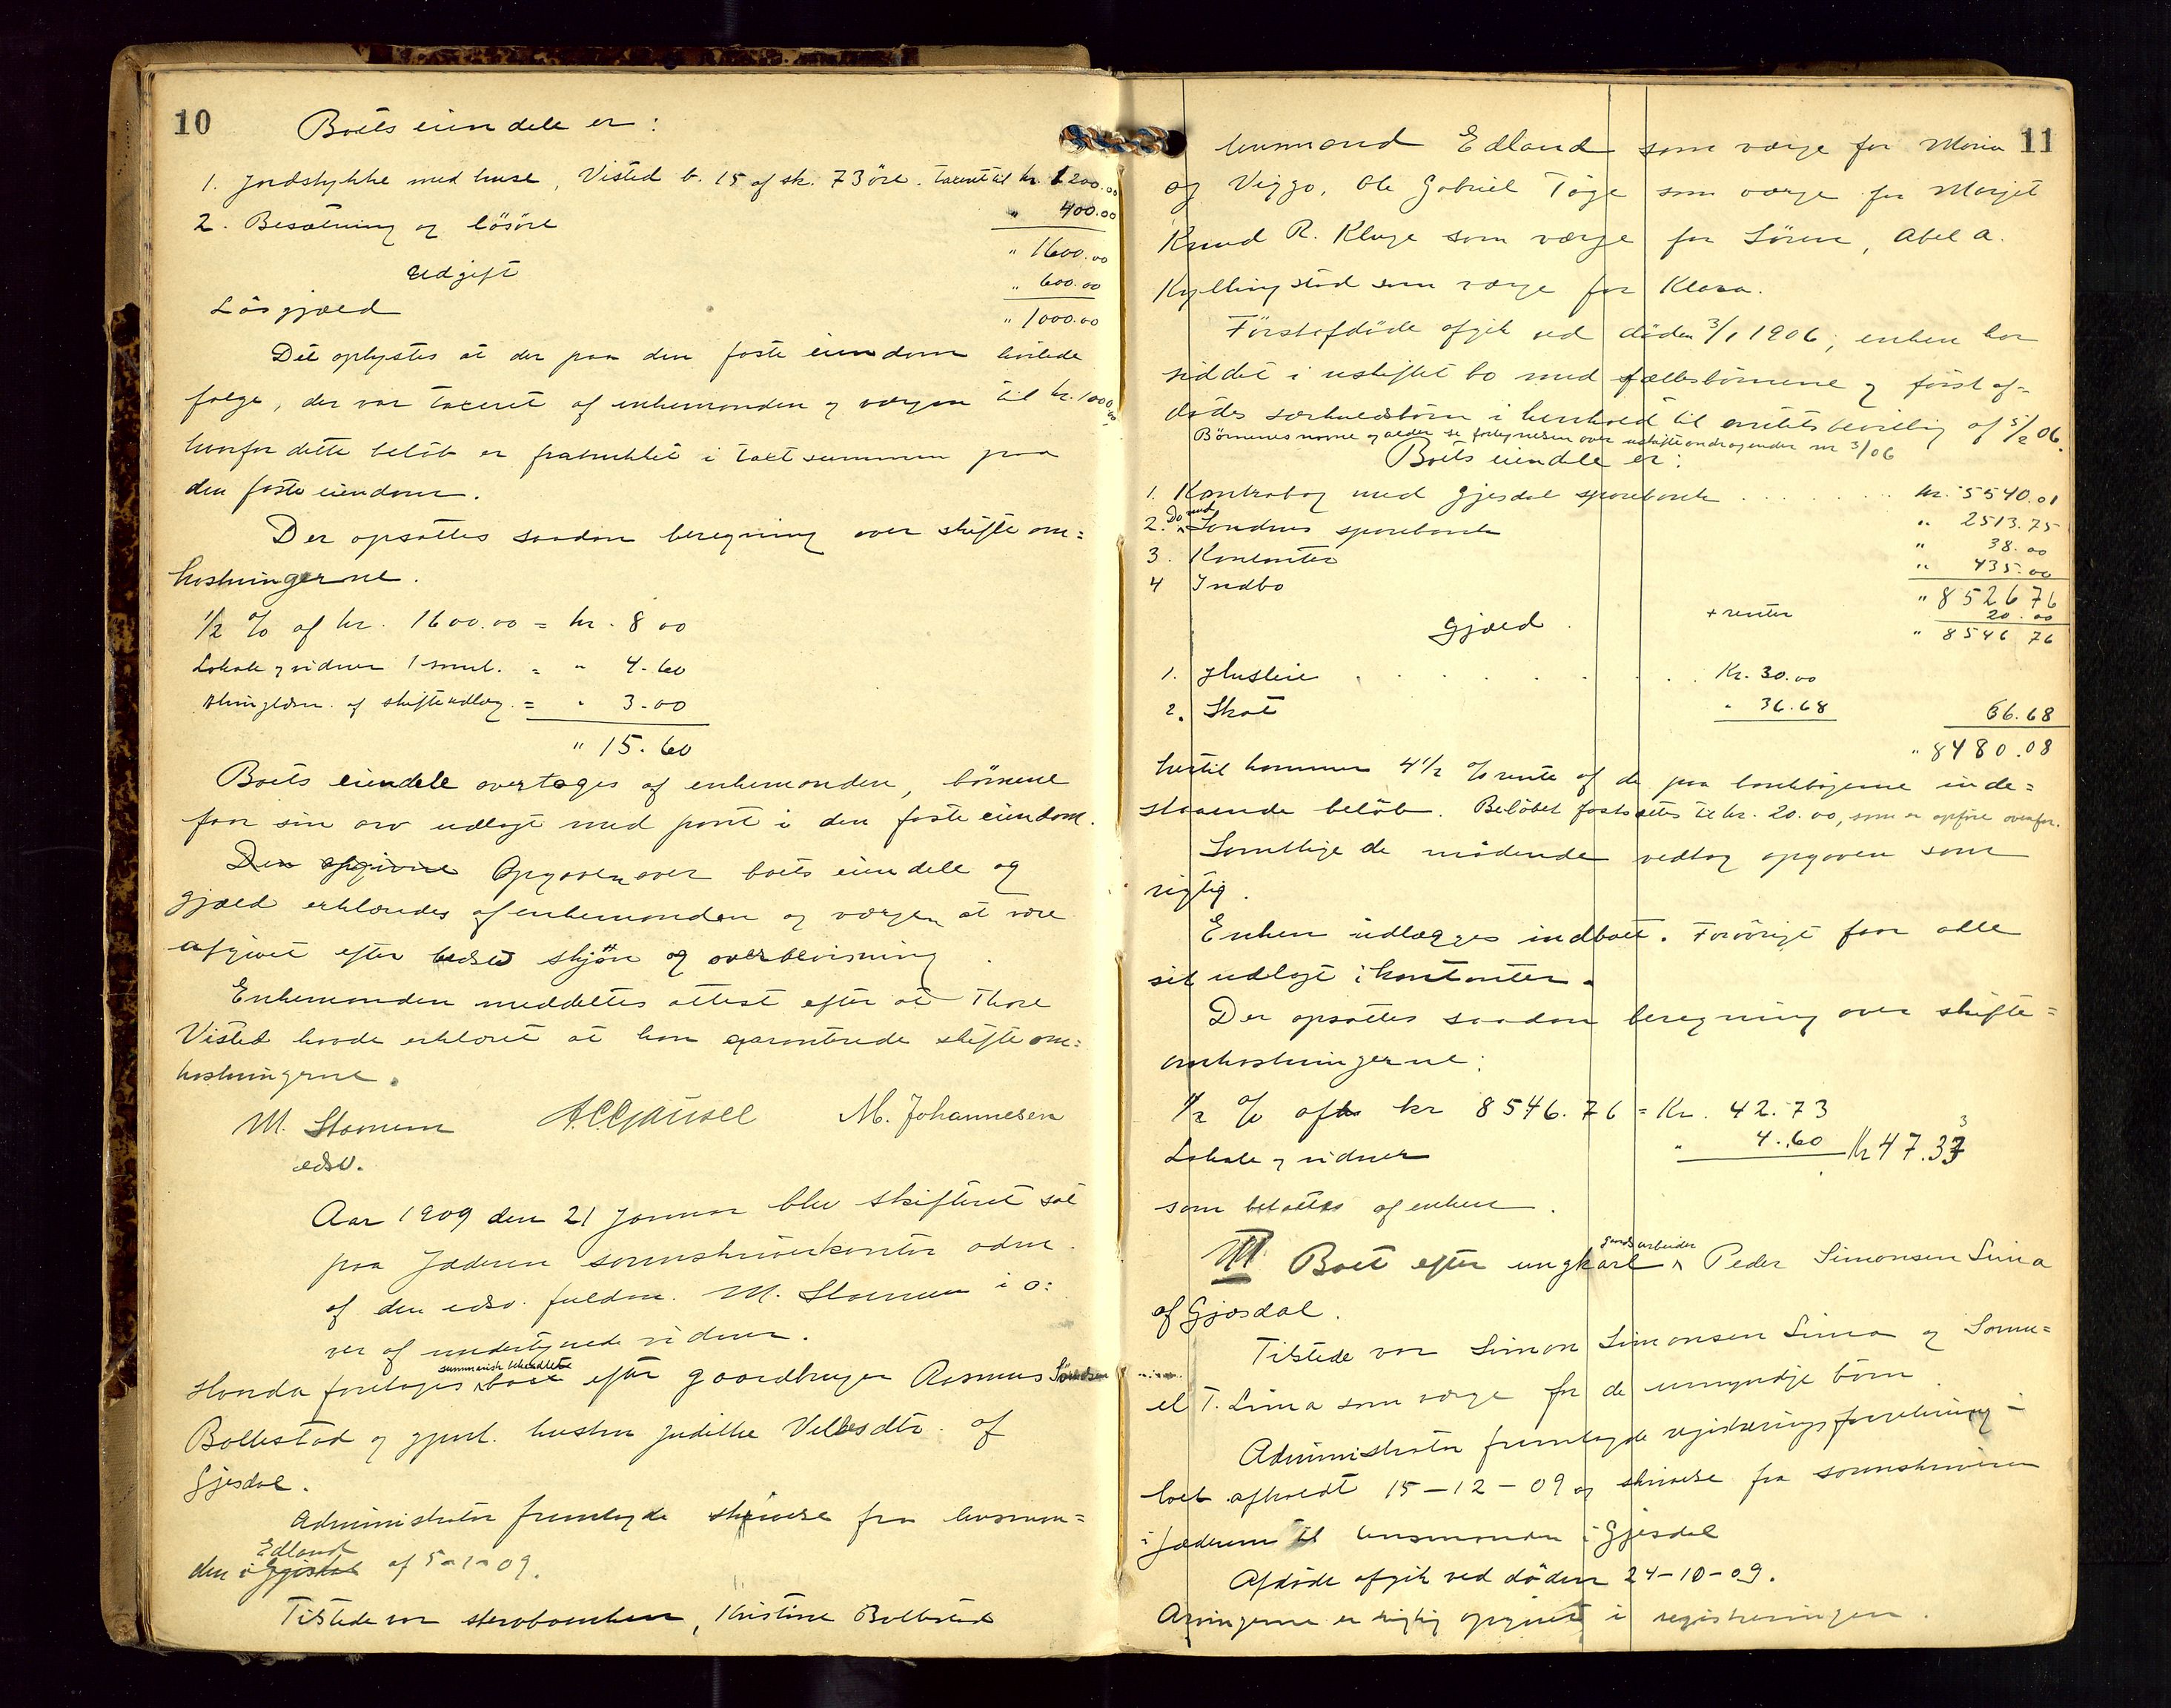 10
Boets eiendele er:
1. Jordstykke med huse, Visted b. 15 af sk. 73 öre. taxert til kr. 1200.00
2. Besætning og lösöre " 400.00
" 1600.00
Udgift
Lösgjæld " 600.00
" 1000.00
Det oplystes at der paa den faste eiendom hvilede
følge, der var taxeret af enkemanden og værgen til kr. 1000.00
hvorfor dette belöb er fratrukket i taxtsummen paa
den faste eiendom.
Der opsattes saadan beregning over skifteom=
kostningerne.
1/2 % af kr. 1600.00 = kr. 8 00
Lokale og vidner 1 saml. = " 4.60
thinglæsn. af skifteudlæg. = " 3.00
" 15.60
Boets eiendele overtages af enkemanden, börnene
faar sin arv udlagt med pant i den faste eiendom.
Den afgivne Opgaven over boets eiendele og
gjæld erklæredes af enkemanden og værgen at være
afgivet efter bedste skjön og overbevisning.
Enkemanden meddeltes attest efter at Thore
Visted havde erklæret at han garanterede skifteom=
kostningerne.
M. Stornem A. C. Gausel M. Johannesen
edsv.
Aar 1909 den 21 januar blev skifteret sat
paa Jæderen sorenskriverkontor adm.
af den edsv. fuldm. M. Stornem i o:
ver af undertegnede vidner.
Honda foretoges summarisk behandlet boet efter gaardbruger Rasmus Sörensen
Bollestad og gjenl. hustru Judithe Vellesdtr. af
Gjesdal.
Administrator fremlagde skrivelse fra lensman=
den i Gjesdal Edland af 5-1-09.
Tilstede var sterboenken, Kristine Bollestad
11
lensmand Edland som værge for Maria
og Viggo, Ole Gabriel Töge som værge for Marjet
Knud R. Kluge som værge for Sören, Abel A.
Kyllingstad som værge for Klara.
Förstafdöde afgik ved döden 3/1 1906, enken har
siddet i uskiftet bo med fællesbörnene og förstaf=
dödes særkuldsbörn i henhold til amtets bevilling af 5/2 06.
Börnenes navne og alder se fortegnelsen over uskifteandragender nr 3/06
Boets eiendele er:
1. Kontrabog med Gjesdal sparebank . . . . . kr. 5540.01
2. Do med Sandnes sparebank " 2513.75
3. Kontanter " 38.00
4 Indbo " 435.00
" 8526 76
+ renter 20.00
" 8546 76
Gjæld.
1. Husleie . . . . . . . Kr. 30.00
2. Skat " 36.68 66.68
" 8480.08
hertil kommer 4 1/2 % rente af de paa bankbögerne inde=
staaende belöb. Belöbet fastsættes til kr. 20.00, som er opfört ovenfor.
Samtlige de mödende vedtog opgaven som
rigtig.
Enken udlægges indboet. Forövrigt faar alle
sit udlagt i kontanter.
Der opsattes saadan beregning over skifte=
omkostningerne:
1/2 % af kr 8546.76 = Kr. 42.73
Lokale og vidner " 4.60 Kr 47.33
3
som betaltes af enken.
III Boet efter ungkarl gaardsarbeider Peder Simonsen Lima
af Gjesdal.
Tilstede var Simon Simonsen Lima og Samu=
el T. Lima som værge for de umyndige börn
Administrator fremlagde registreringsforretning i
boet afholdt 15-12-09 og skrivelse fra sorenskriveren
i Jæderen til lensmanden i Gjesdal
Afdöde afgik ved döden 24-10-09.
Arvingerne er rigtig opgivet i registreringen.